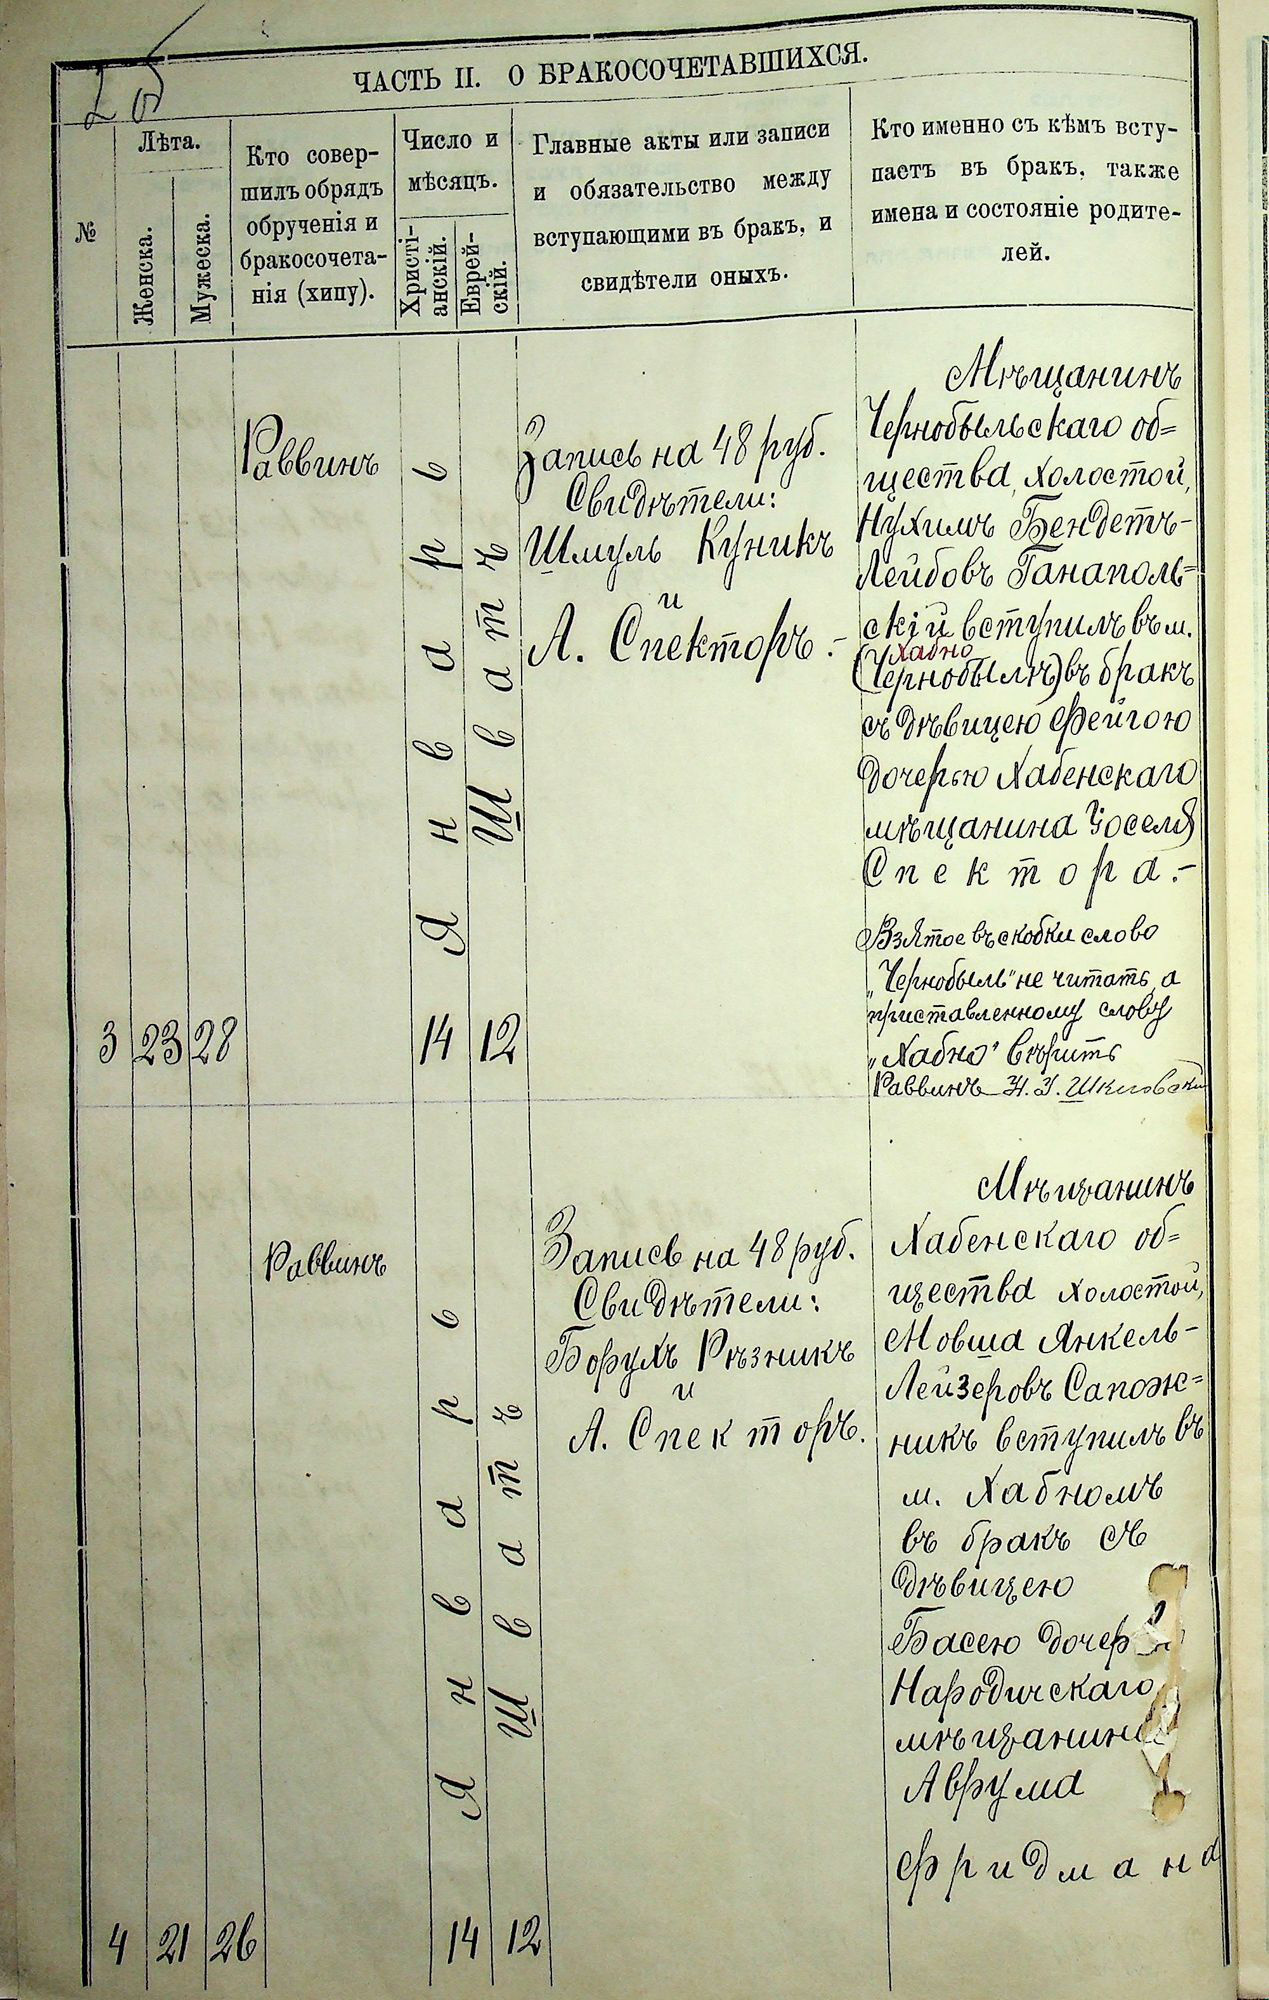 2 об
ЧАСТЬ II. О БРАКОСОЧЕТАВШИХСЯ.
№
Лѣта.
Женска.
Мужеска.
Кто совер-
шилъ обрядъ
обрученія и
бракосочета-
нія (хипу).
Число и
мѣсяцъ.
Христі-
анскій.
Еврей-
скій.
Главные акты или записи
и обязательство между
вступающими въ бракъ, и
свидѣтели оныхъ.
Кто именно съ кѣмъ всту-
паетъ въ бракъ, также
имена и состояніе родите-
лей.
3
23
28
Раввинъ
Январь
14
Шватъ
12
Запись на 48 руб.
Свидѣтели:
Шмуль Куникъ
и
А. Спекторъ.-
Мѣщанинъ
Чернобыльскаго об=
щества, холостой,
Нухимъ Бендетъ-
Лейбовъ Ганаполь=
скій вступилъ въ м.
Хабно
(Чернобылѣ) въ бракъ
съ дѣвицею Фейгою
дочерью Хабенскаго
мѣщанина Іоселя
Спектора.-
Взятое въ скобки слово
„Чернобыль" не читать, а
приставленному слову
„Хабно" вѣрить
Раввинъ Н. І. Шкловскій
4
21
26
Раввинъ
Январь
14
Шватъ
12
Запись на 48 руб.
Свидѣтели:
Борухъ Рѣзникъ
и
А. Спекторъ.
Мѣщанинъ
Хабенскаго об=
щества холостой,
Мовша Янкель-
Лейзеровъ Сапож=
никъ вступилъ въ
м. Хабномъ
въ бракъ съ
дѣвицею
Басею дочерью
Народичскаго
мѣщанина
Аврума
Фридмана